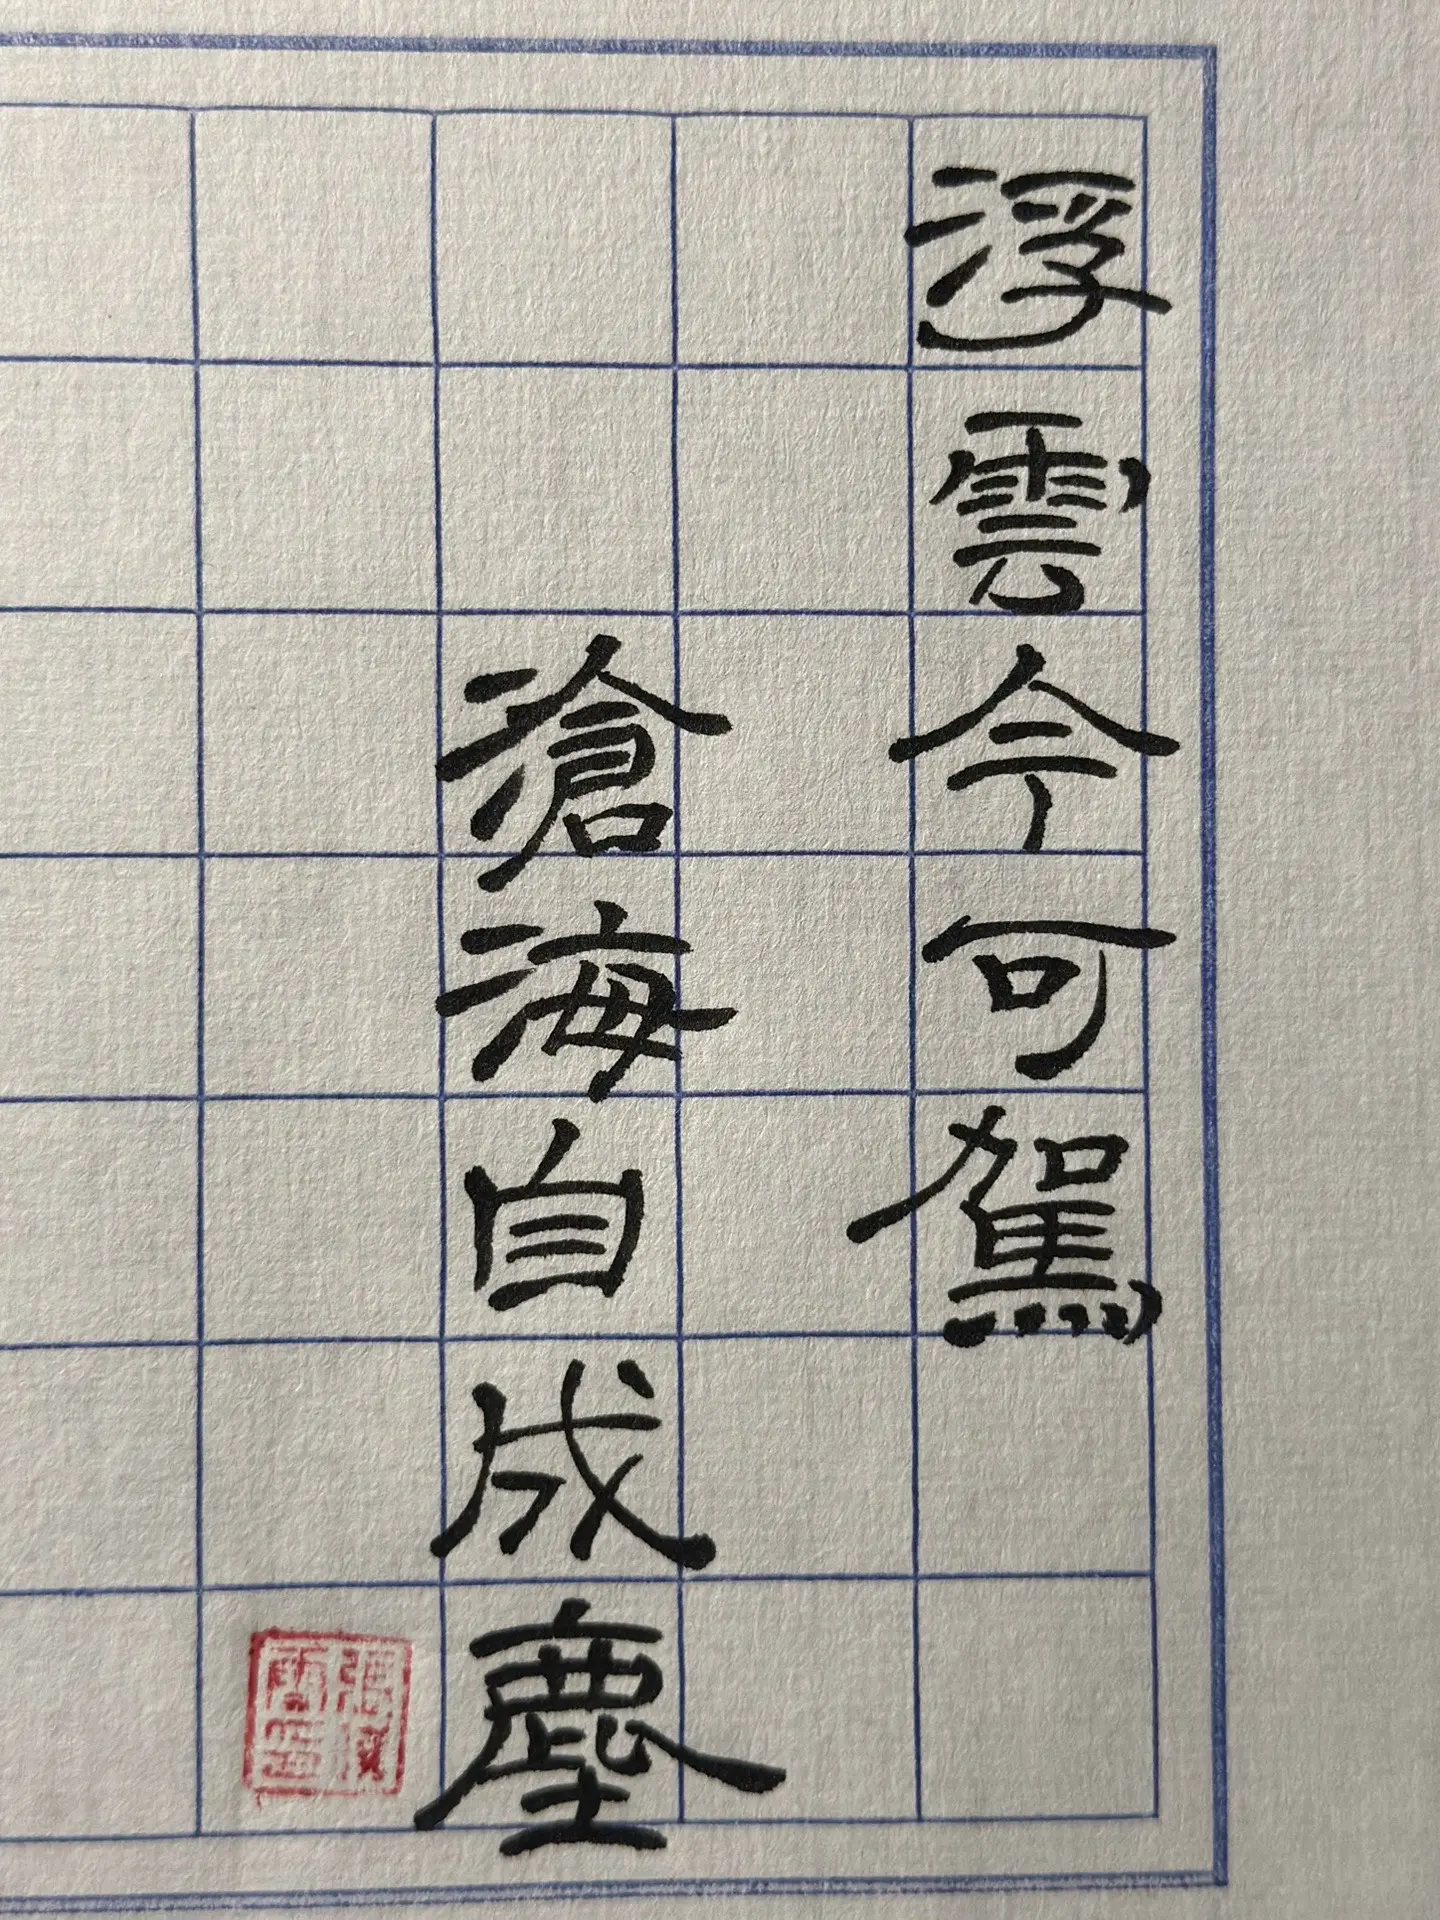 浮雲今可駕
滄海自成塵